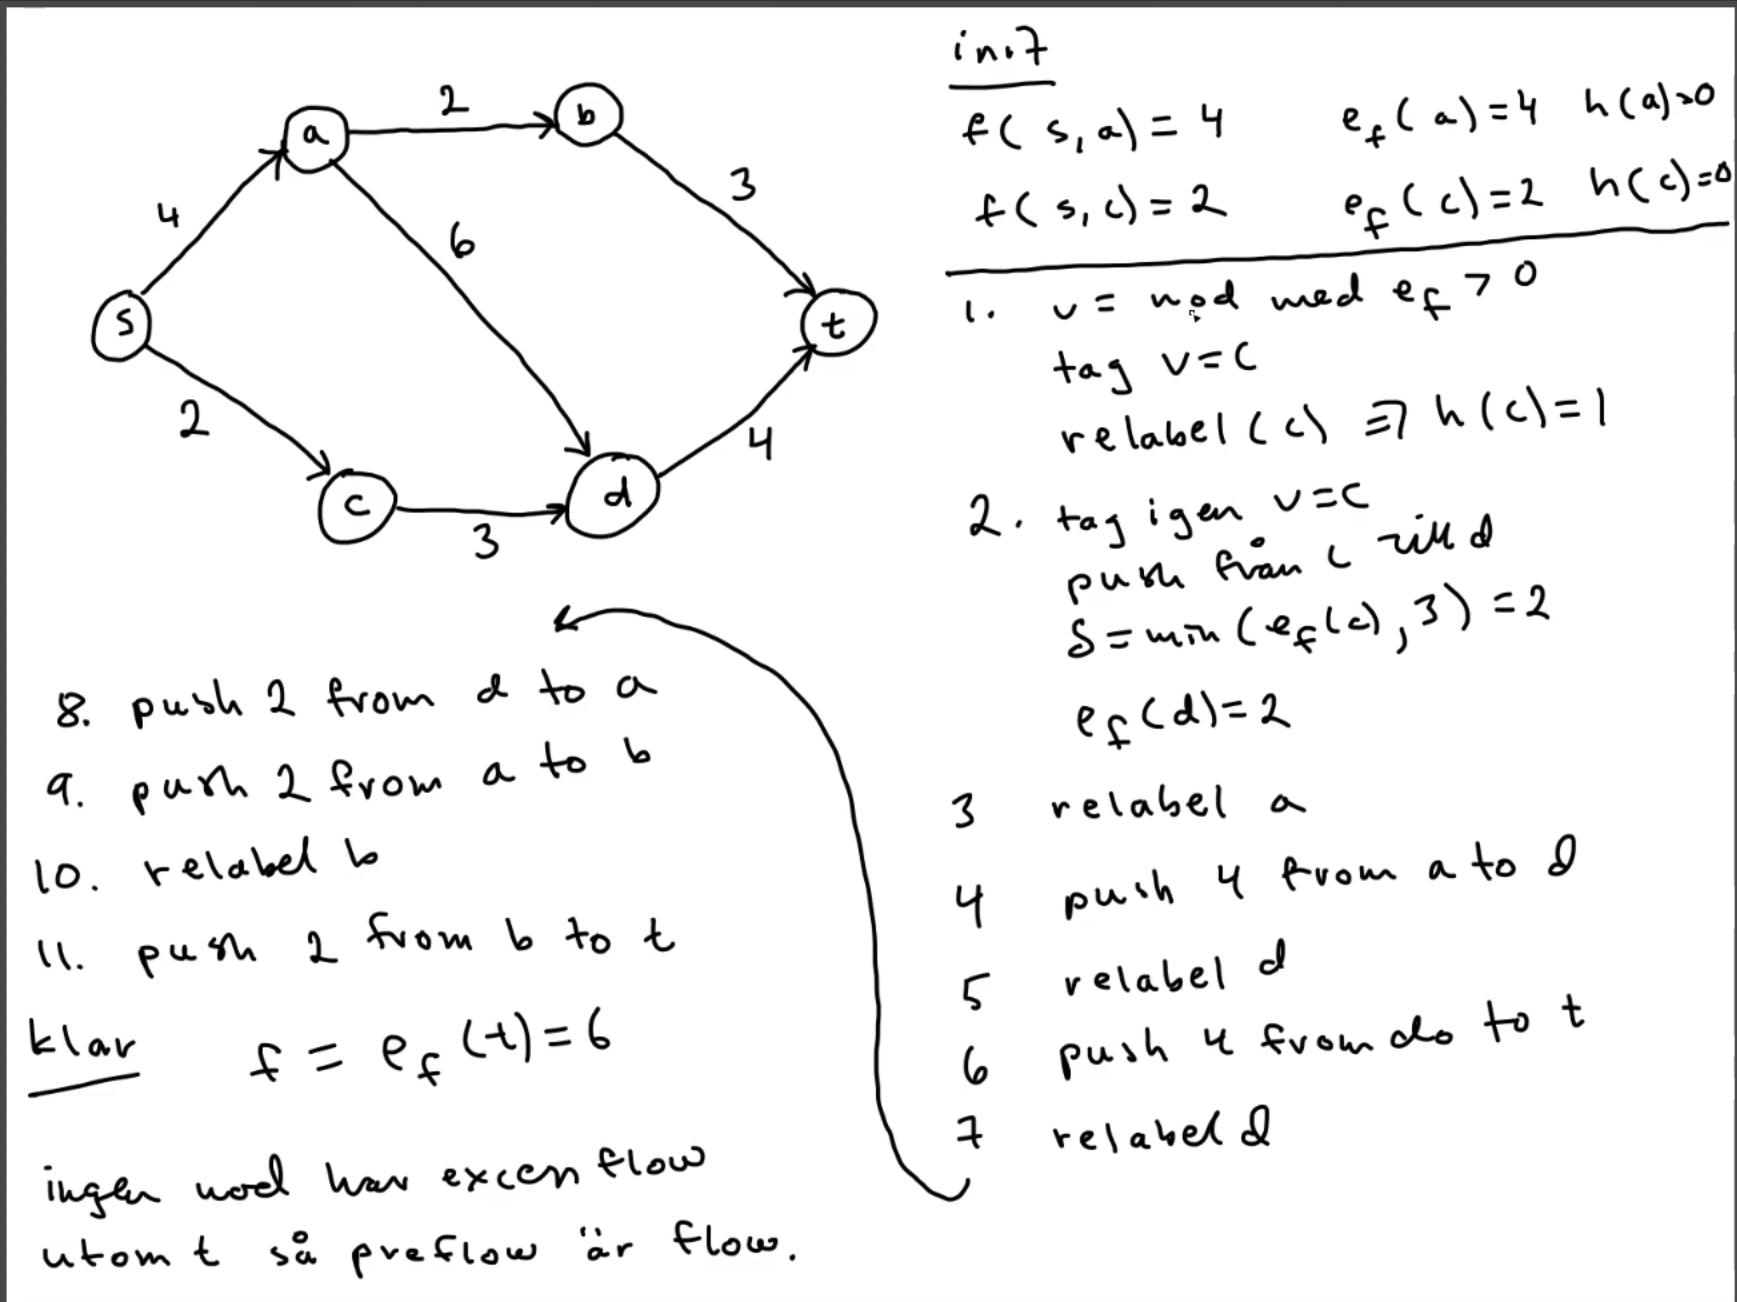 a
2
b
3
4
6
s
t
2
4
c
3
d
init
f(s,a) = 4 e_f(a)=4 h(a)=0
f(s,c) = 2 e_f(c)=2 h(c)=0
1. v = nod med e_f > 0
tag v=c
relabel(c) => h(c)=1
2. tag igen v=c
push från c till d
δ = min(e_f(c), 3) = 2
e_f(d)=2
3 relabel a
4 push 4 from a to d
5 relabel d
6 push 4 from do to t
7 relabel d
8. push 2 from d to a
9. push 2 from a to b
10. relabel b
11. push 2 from b to t
klar f = e_f(t)=6
ingen nod har excess flow
utom t så preflow är flow.